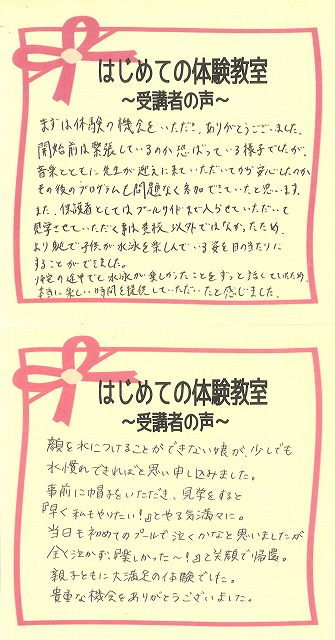 はじめての体験教室
～受講者の声～
まずは体験の機会をいただき、ありがとうございました。
開始前は緊張しているのか怒ばっている様子でしたが、
音楽とともに先生が迎えに来ていただいてから安心したのか
その後のプログラムも問題なく参加できていたと思います。
また、保護者としてはプールサイドまで入らせていただいて
見学させていただく事は 以外ではなかったため、
より近で子供が水泳を楽しんでいる姿を目の当たりに
することができました。
帰宅の途中でも水泳が楽しかったことをずっと話していたため、
本当に楽しい時間を提供していただいたと感じました。
はじめての体験教室
～受講者の声～
顔を水につけることができない娘が、少しでも
水慣れできればと思い申し込みました。
事前に帽子をいただき、見学をすると
『早く私もやりたい！』とやる気満々に。
当日も初めてのプールで泣くかなと思いましたが
全く泣かず、『楽しかった～！』と笑顔で帰還。
親子ともに大満足の体験でした。
貴重な機会をありがとうございました。